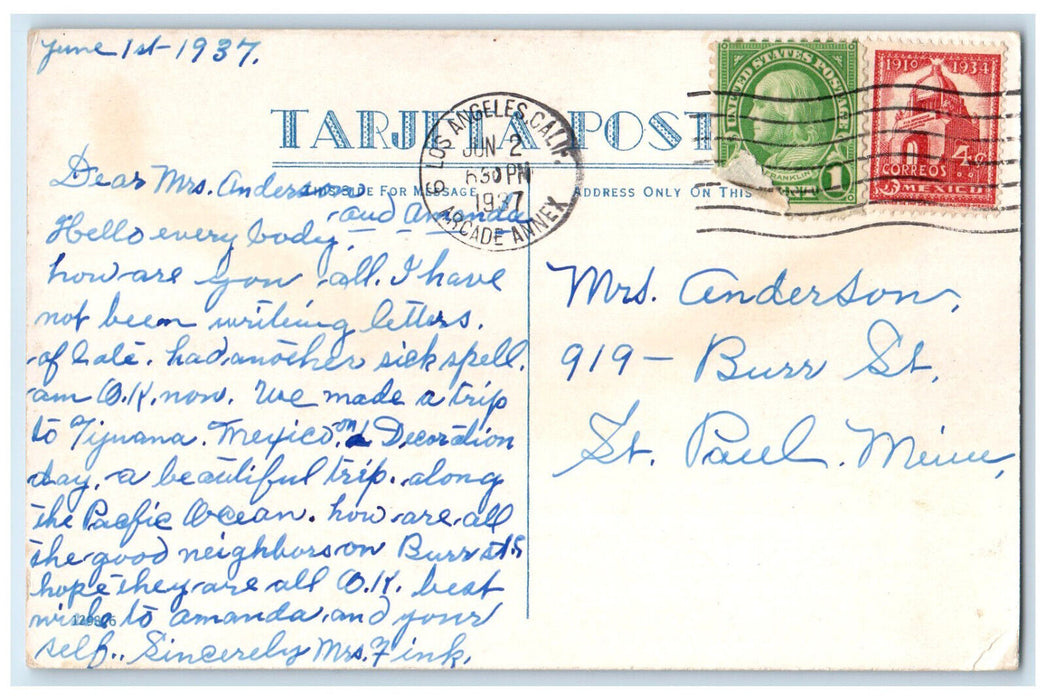 June 1st - 1937.
TARJETA POST
THIS SIDE FOR MESSAGE
ADDRESS ONLY ON THIS
LOS ANGELES, CALIF.
JUN 2
630 PM
1937
ARCADE ANNEX
UNITED STATES POSTAGE
FRANKLIN
1
1910 1934
4
CORREOS
MEXICO
Dear Mrs. Anderson
and Amanda
Hello every body,
how are you all. I have
not been writing letters.
of late. had another sick spell.
am O.K. now. We made a trip
to Tijuana. Mexico. on Decoration
day. a beautiful trip. along
the Pacific Ocean. how are all
the good neighbors on Burr st
hope they are all O.K. best
wishs to amanda. and your
self.. Sincerely Mrs. Fink.
Mrs. Anderson,
919 - Burr St.
St. Paul. Minn,